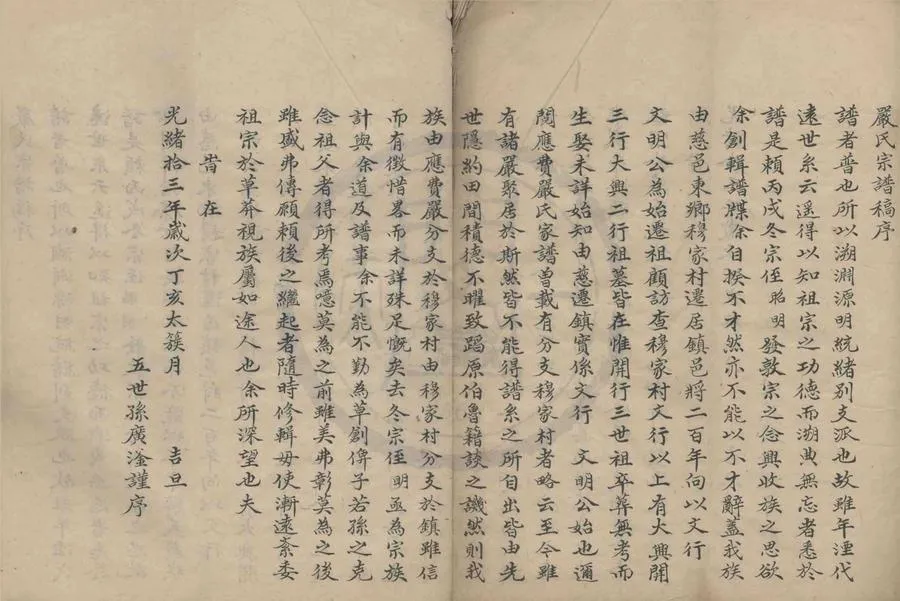 嚴氏宗譜稿序
譜者普也所以溯淵源明統緒別支派也故雖年湮代
遠世系云遙得以知祖宗之功德而溯典無忘者悉於
譜是賴丙戌冬宗侄昭明發敦宗之念興收族之思欲
余創輯譜牒余自揆不才然亦不能以不才辭蓋我族
由慈邑東鄉穆家村遷居鎮邑將二百年向以文行
文明公為始遷祖顧訪查穆家村文行以上有大興開
三行大興二行祖墓皆在惟開行三世祖卒葬無考而
生娶未詳始知由慈遷鎮實係文行 文明公始也邇
閱應費嚴氏家譜曾載有分支穆家村者略云至今雖
有諸嚴聚居於斯然皆不能得譜系之所自出皆由先
世隱約田間積德不曜致蹈原伯魯籍談之譏然則我
族由應費嚴分支於穆家村由穆家村分支於鎮雖信
而有徵惜畧而未詳殊足慨矣去冬宗侄明亟為宗族
計與余道及譜事余不能不勤為草創俾子若孫之克
念祖父者得所考焉噫莫為之前雖美弗彰莫為之後
雖盛弗傳願賴後之繼起者隨時修輯毋使漸遠紊委
祖宗於草莽視族屬如途人也余所深望也夫
旹在
光緒拾三年歲次丁亥太簇月 吉旦
五世孫廣淦謹序